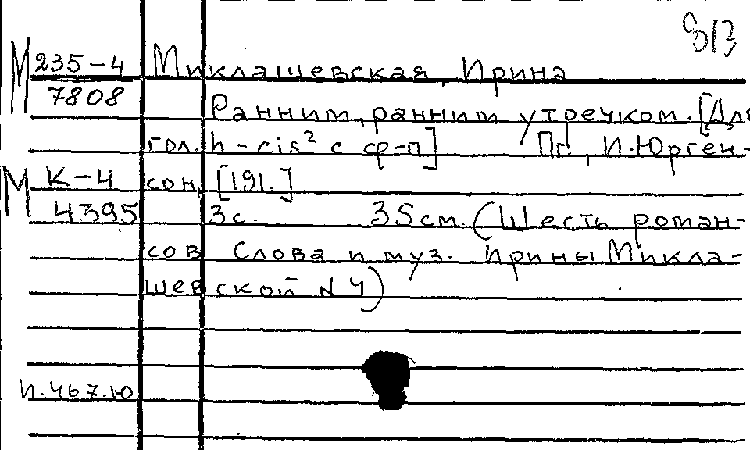 813
М 235-4 Миклашевская, Ирина
7808 Ранним, ранним утречком. [Для
гол. h - cis² с ф-п] Пг., И. Юрген-
М К-4 сон, [191.]
4395 3 с. 35 см. (Шесть роман-
сов Слова и муз. Ирины Микла-
шевской N 4)
И.467.Ю